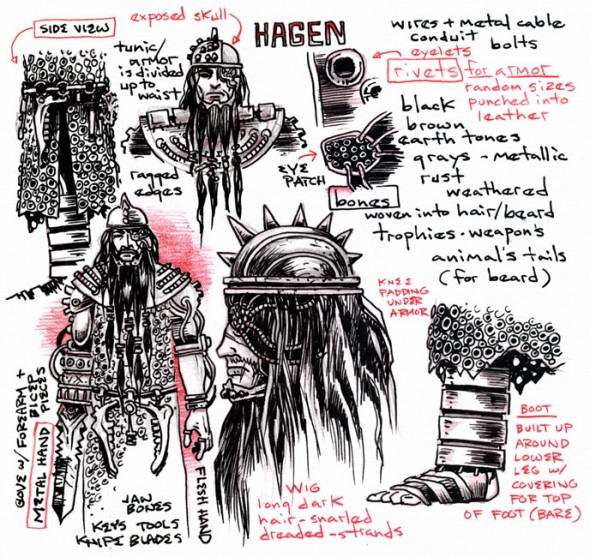 SIDE VIEW
exposed skull
HAGEN
tunic/
armor
is divided
up to
waist
ragged
edges
EYE
PATCH
wires + metal cable
conduit bolts
eyelets
rivets for armor
random sizes
punched into
leather
black
brown
earth tones
grays - metallic
rust
weathered
bones
woven into hair/beard
trophies - weapon's
animal's tails
(for beard)
KNEE
PADDING
UNDER
ARMOR
GOVE W/ FOREARM +
BICEP
PIECES
METAL HAND
JAW
BONES
KEYS TOOLS
KNIFE BLADES
FLESH HAND
WIG
long/dark
hair-snarled
dreaded-strands
BOOT
BUILT UP
AROUND
LOWER
LEG W/
COVERING
FOR TOP
OF FOOT (BARE)